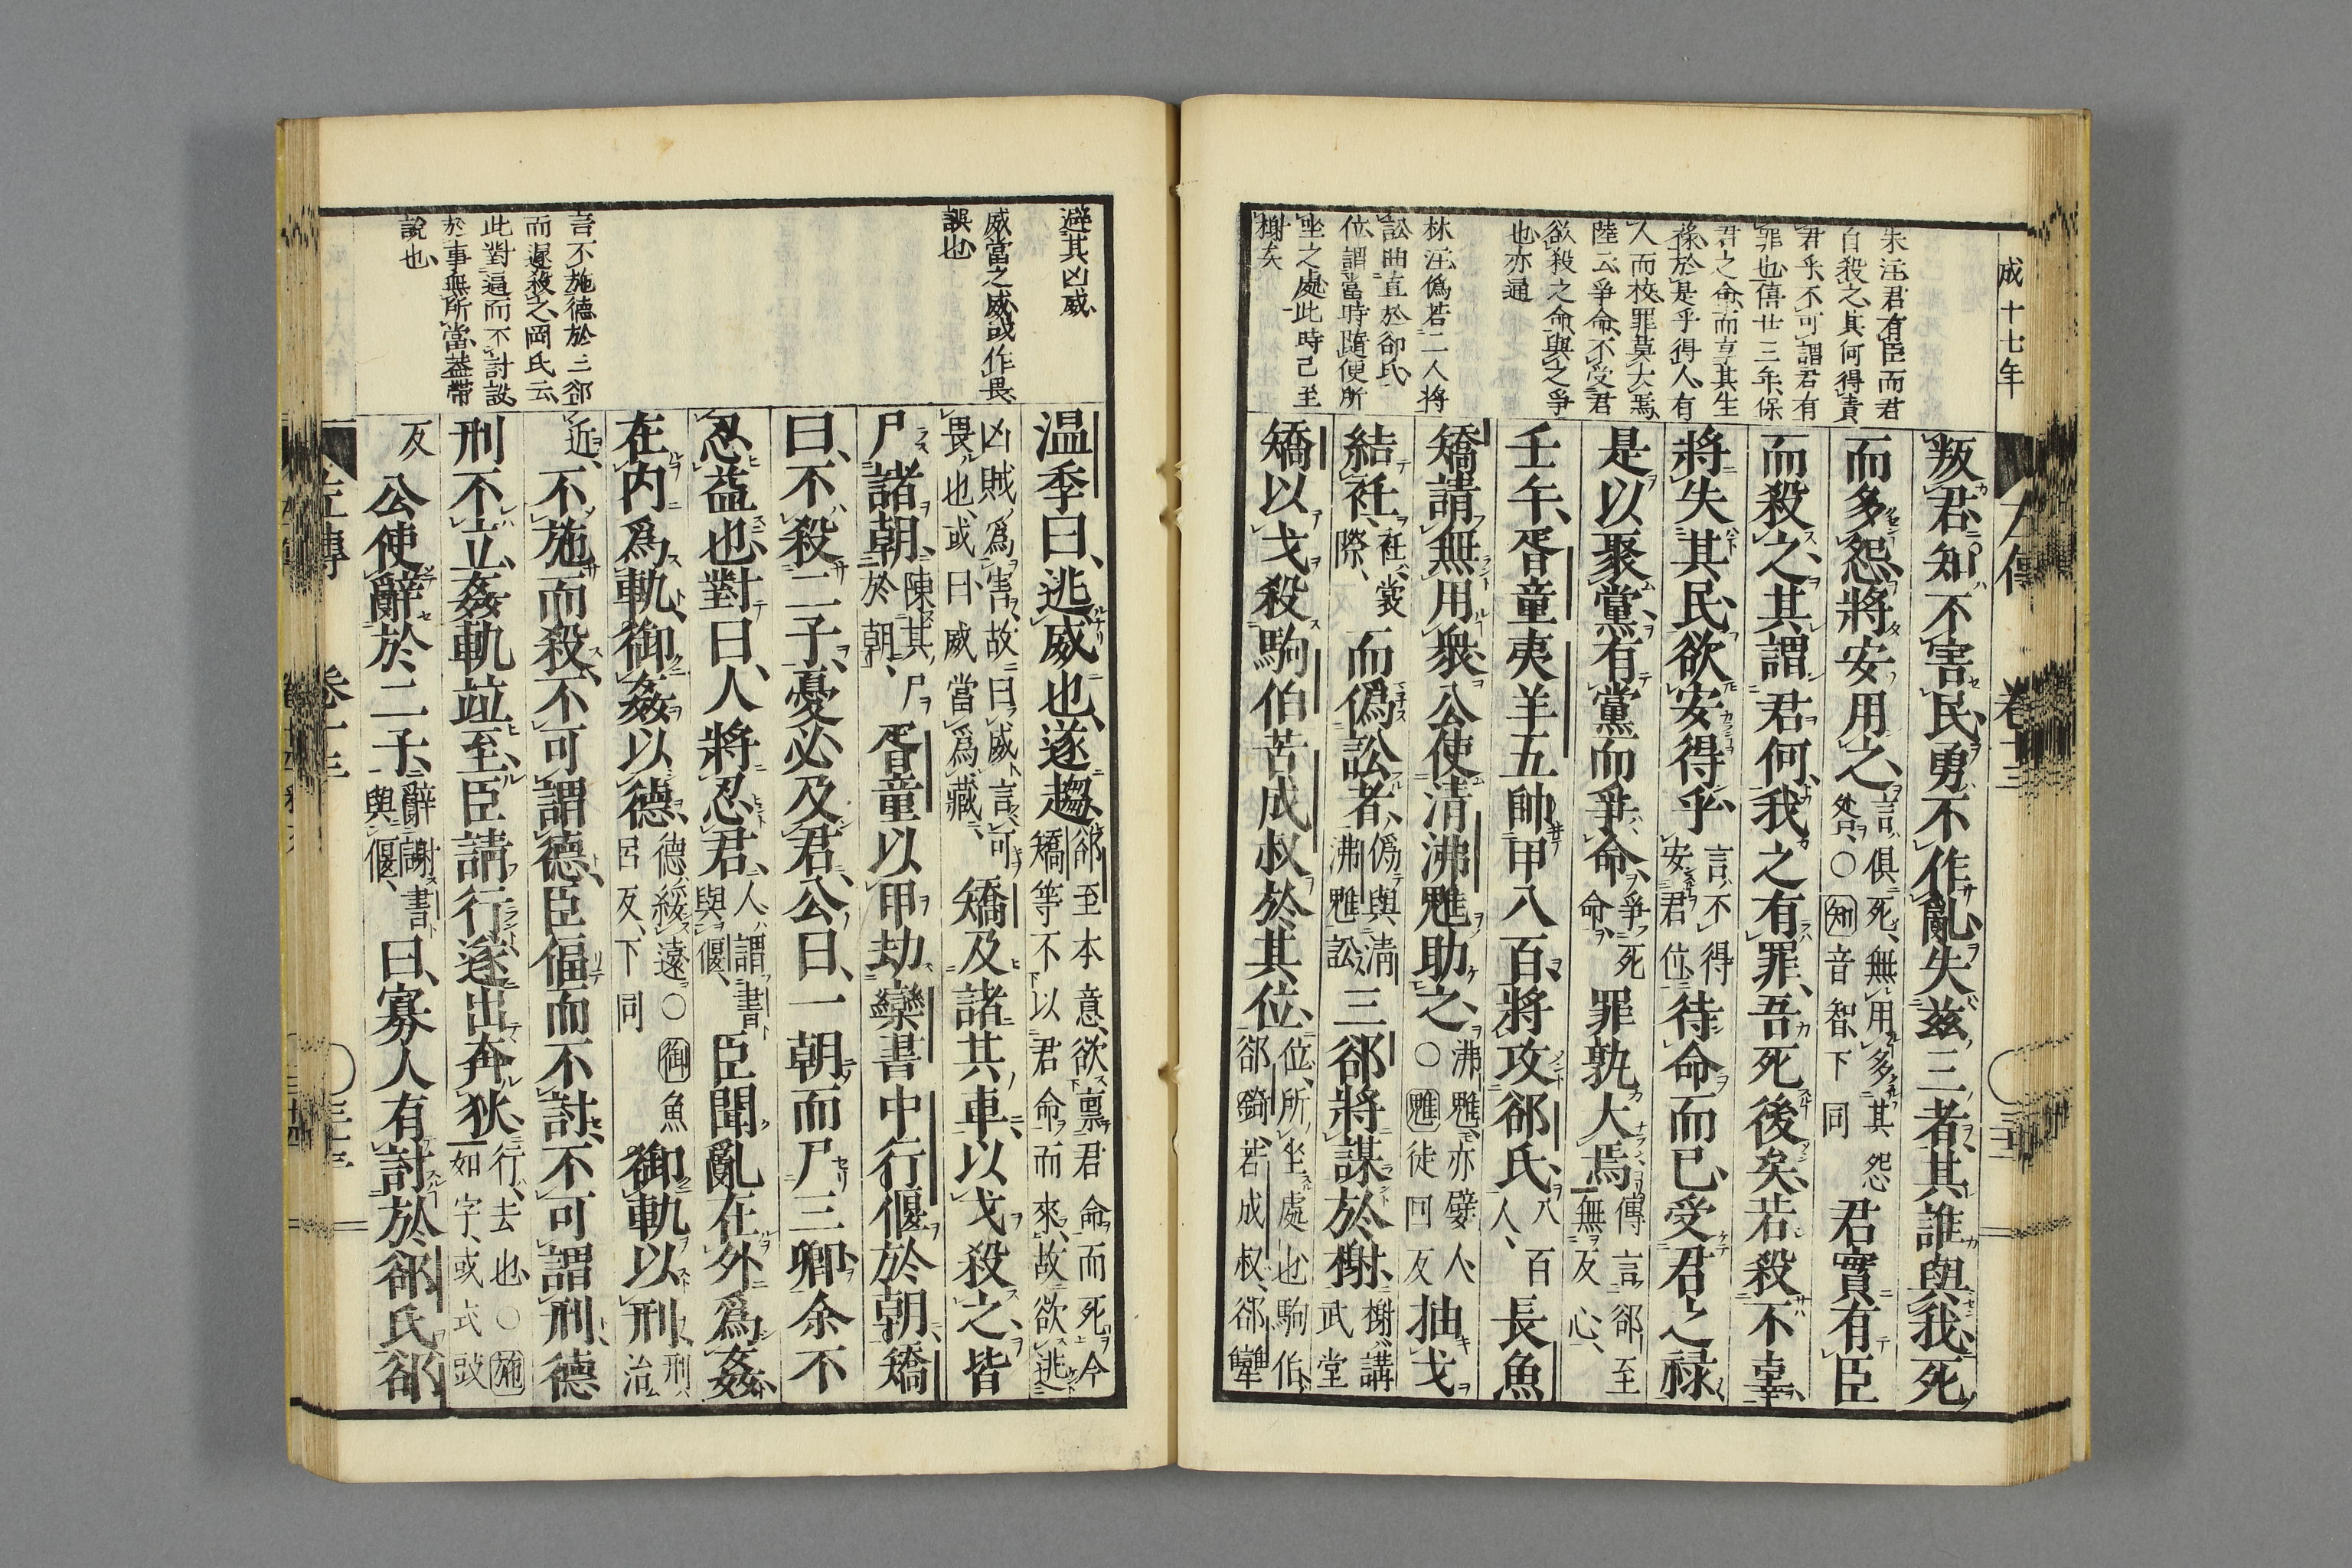 成十七年
左傳 卷十三
朱注君有臣而君
自殺之其何得責
君乎不可謂君有
罪也僖廿三年保
君之命而享其生
祿於是乎得人有
人而校罪莫大焉
陸云爭命不受君
欲殺之命與之爭
也亦通
林注僞若二人將
訟曲直於郤氏
位謂當時隨便所
坐之處此時已至
榭矣
叛君、知不害民、勇不作亂、失茲三者、其誰與我、死
而多怨、將安用之、言俱死、無用多其怨咎、○知音智、下同君實有臣
而殺之、其謂君何、我之有罪、吾死後矣、若殺不辜、
將失其民、欲安得乎、言不得安君位、待命而已、受君之祿、
是以聚黨、有黨而爭命、爭死命、罪孰大焉、傳言郤至無反心、
壬午、胥童夷羊五帥甲八百、將攻郤氏、八百人、長魚
矯請無用衆、公使清沸魋助之、沸魋亦嬖人、○魋徒回反抽戈
結衽、衽、裳際、而僞訟者、僞與清沸魋訟、三郤將謀於榭、榭、講武堂
矯以戈殺駒伯苦成叔於其位、位、所坐處也、駒伯、郤錡、苦成叔、郤犨
避其凶威
威當之威或作畏
誤也
言不施德於三郤
而遽殺之岡氏云
此對逼而不討設
於事無所當蓋帶
說也
温季曰、逃威也、遂趨、郤至本意、欲禀君命而死、今矯等不以君命而來、故欲逃
凶賊爲害、故曰威、言可畏也、或曰、威當爲藏、矯及諸其車、以戈殺之、皆
尸諸朝、陳其尸於朝、胥童以甲劫欒書中行偃於朝、矯
曰、不殺二子、憂必及君、公曰、一朝而尸三卿、余不
忍益也、對曰、人將忍君、人、謂書與偃、臣聞亂在外爲姦、
在内爲軌、御姦以德、德綏遠○御魚呂反、下同御軌以刑、刑治
近、不施而殺、不可謂德、臣偪而不討、不可謂刑、德
刑不立、姦軌竝至、臣請行、遂出奔狄、行、去也、○施如字、或式豉
反公使辭於二子、辭謝書與偃、曰、寡人有討於郤氏、郤
左傳 卷十三